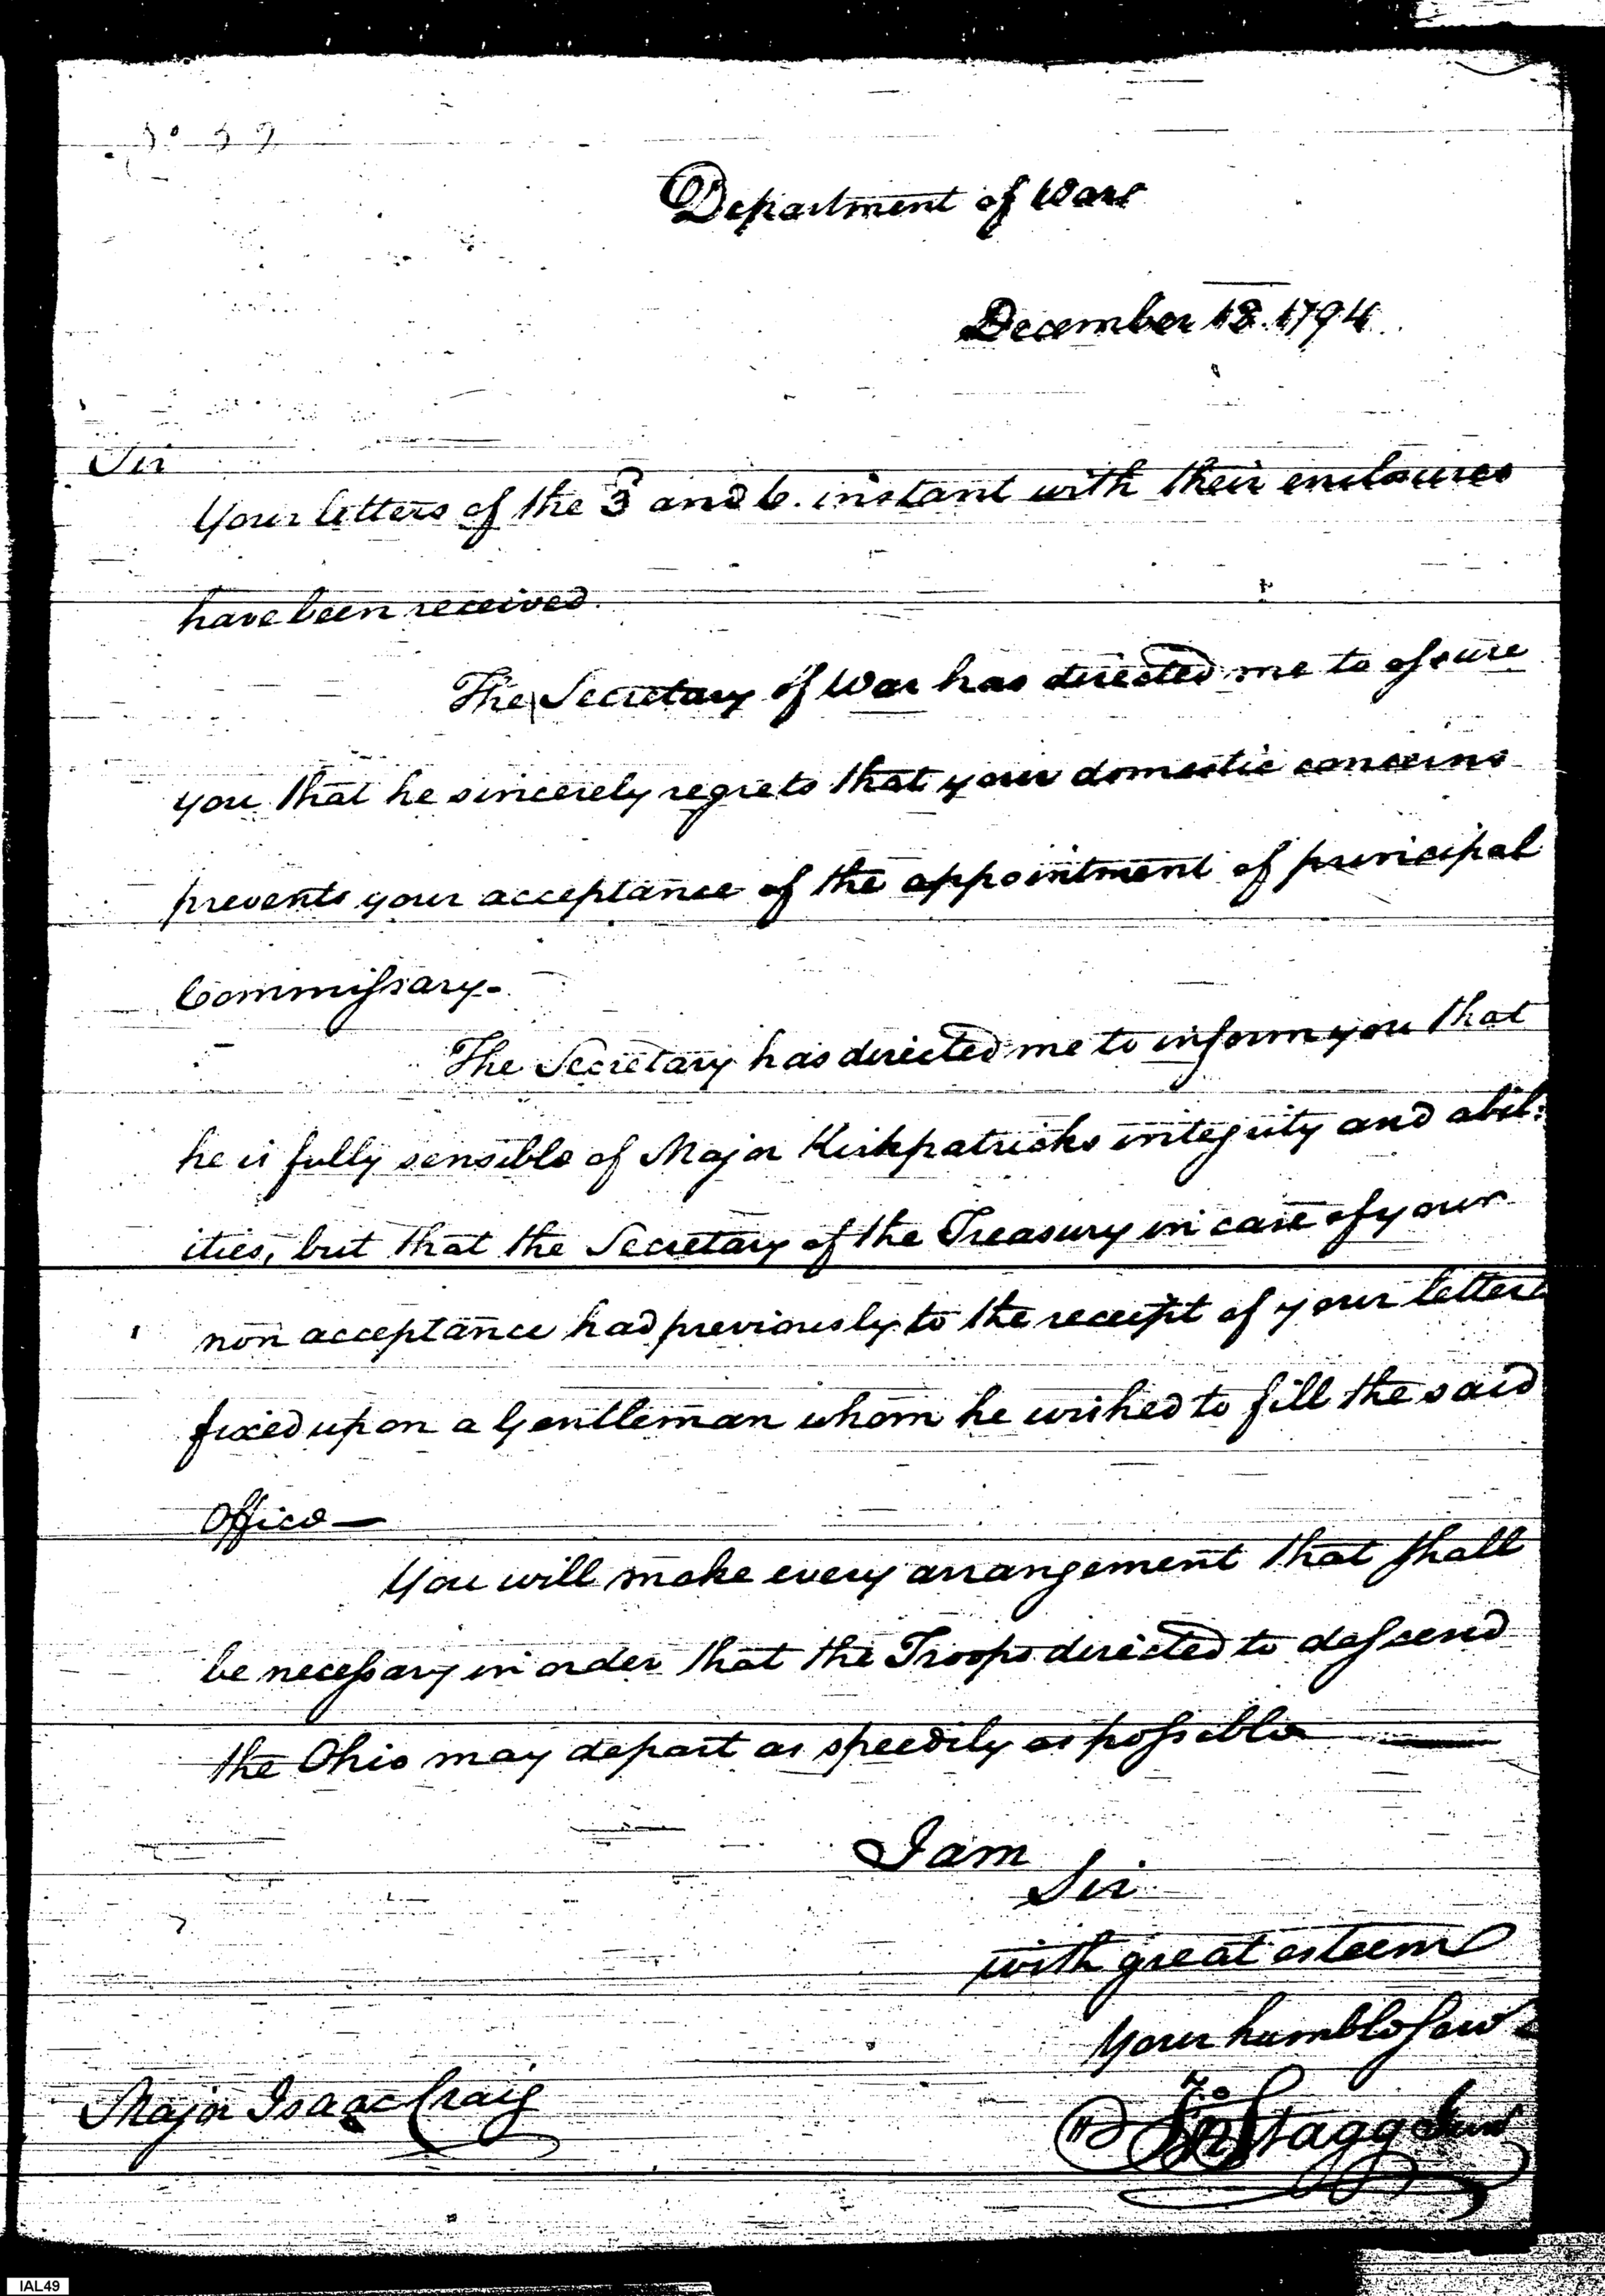 Department of War
December 18. 1794.
Sir
Your letters of the 3 and 6. instant with their enclosures
have been received.
The Secretary of War has directed me to assure
you that he sincerely regrets that your domestic concerns
prevents your acceptance of the appointment of principal
Commissary.
The Secretary has directed me to inform you that
he is fully sensible of Major Kirkpatricks integrity and abil:
ities, but that the Secretary of the Treasury in case of your
non acceptance had previously to the receipt of your letters
fixed upon a Gentleman whom he wished to fill the said
Office —
You will make every arrangement that shall
be necessary in order that the Troops directed to descend
the Ohio may depart as speedily as possible
I am
Sir
with great esteem
Your humble Serv
Jno Stagg Junr
Major Isaac Craig
IAL49